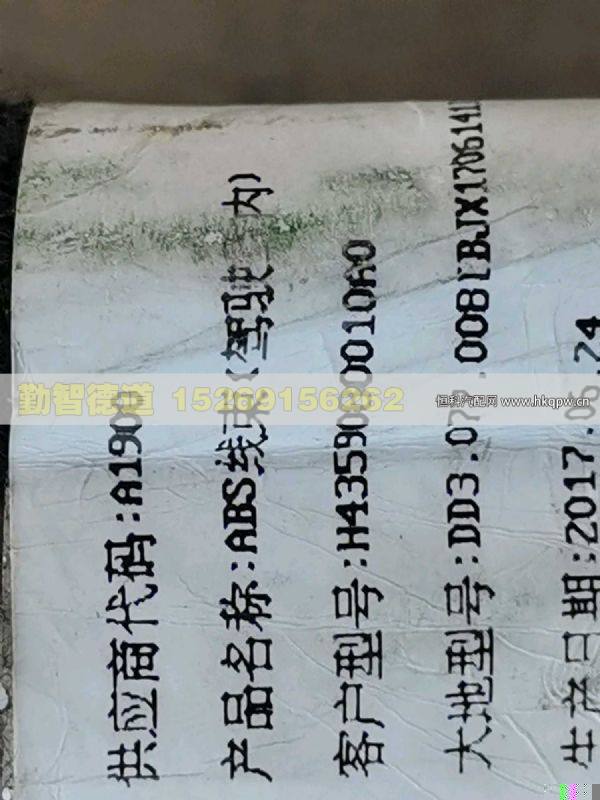 供应商代码:A190
产品名称:ABS线束(驾驶室内)
客户型号:H43590 0010A0
大地型号:DD3.07 .008[BJX1706141
生产日期:2017. .24
勤智德道 15269156262
恒科汽配网 www.hkqpw.cn